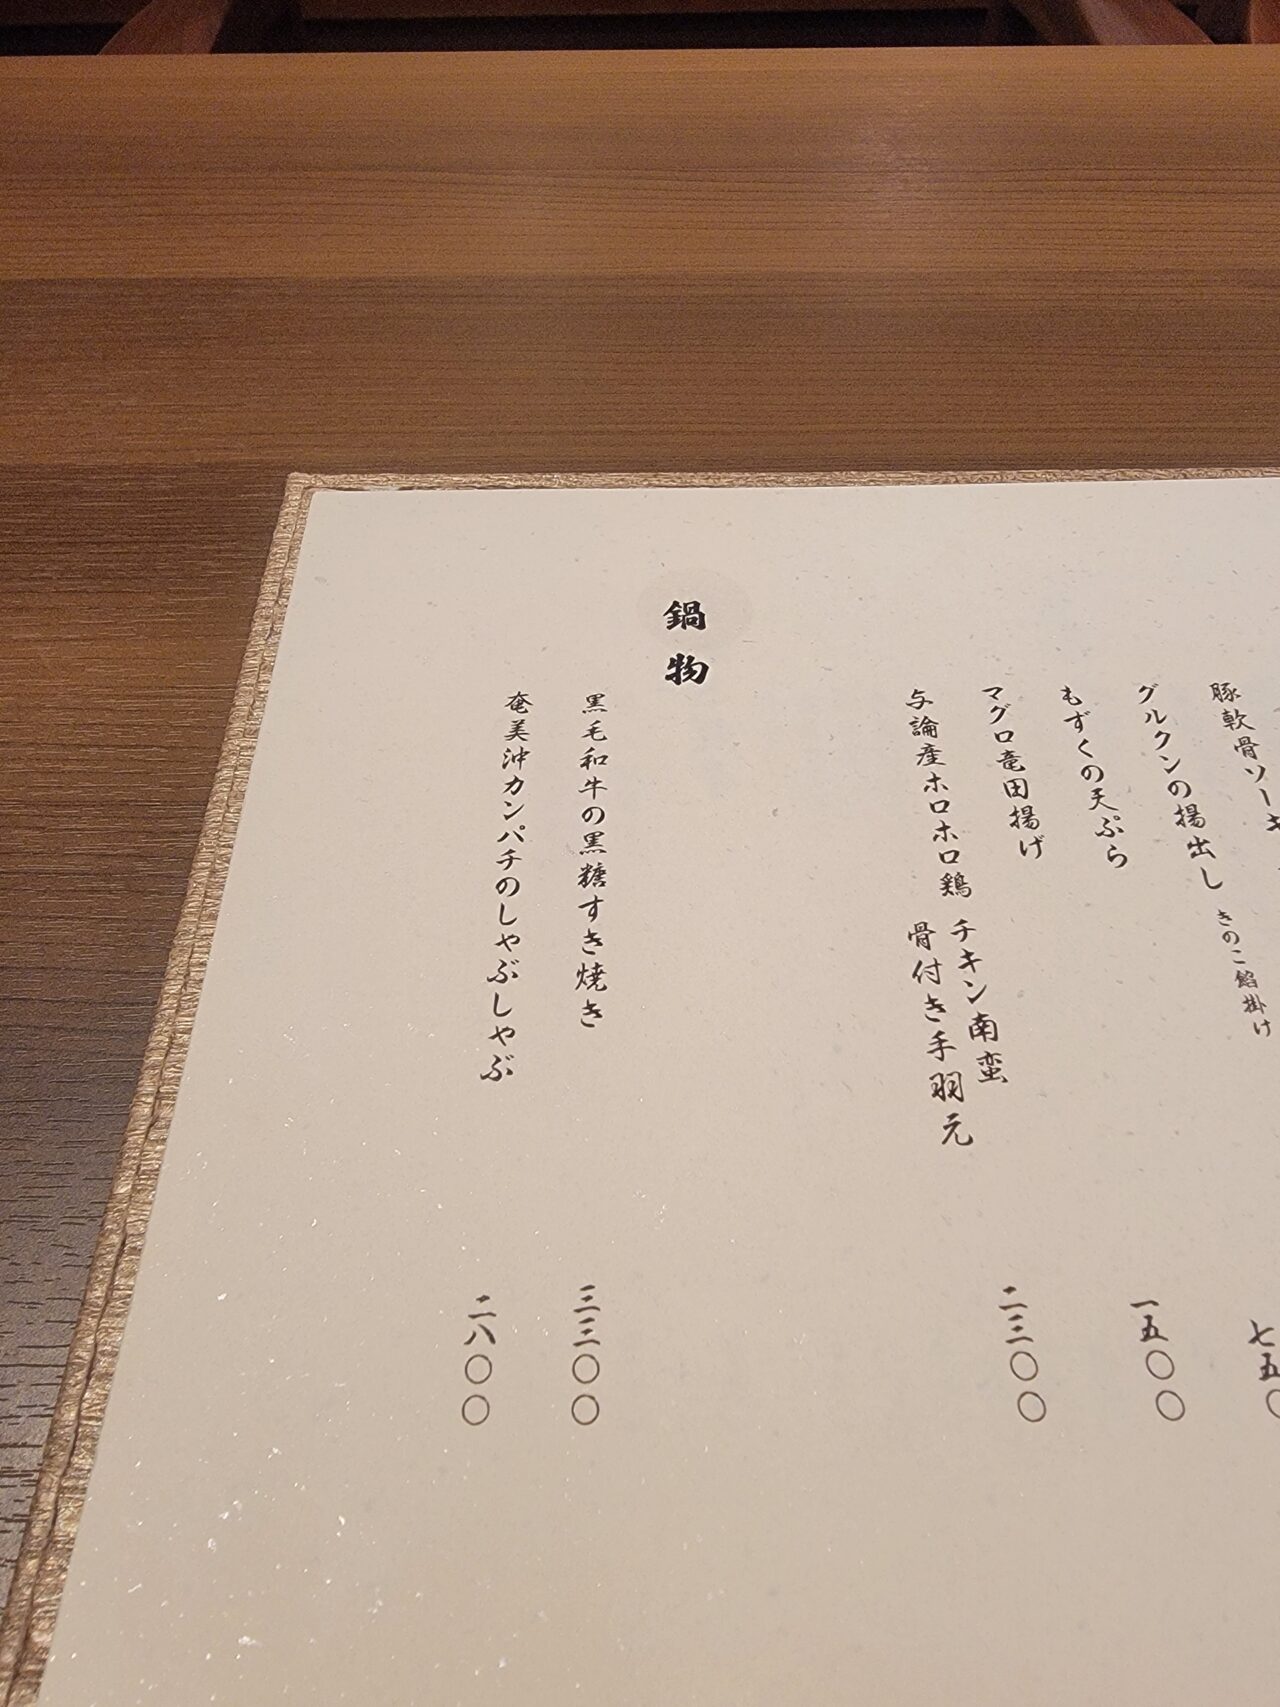 豚軟骨ソーキ
七五〇
グルクンの揚出し きのこ餡掛け
一五〇〇
もずくの天ぷら
マグロ竜田揚げ
与論産ホロホロ鶏 チキン南蛮
骨付き手羽元
二三〇〇
鍋物
黒毛和牛の黒糖すき焼き
三三〇〇
奄美沖カンパチのしゃぶしゃぶ
二八〇〇